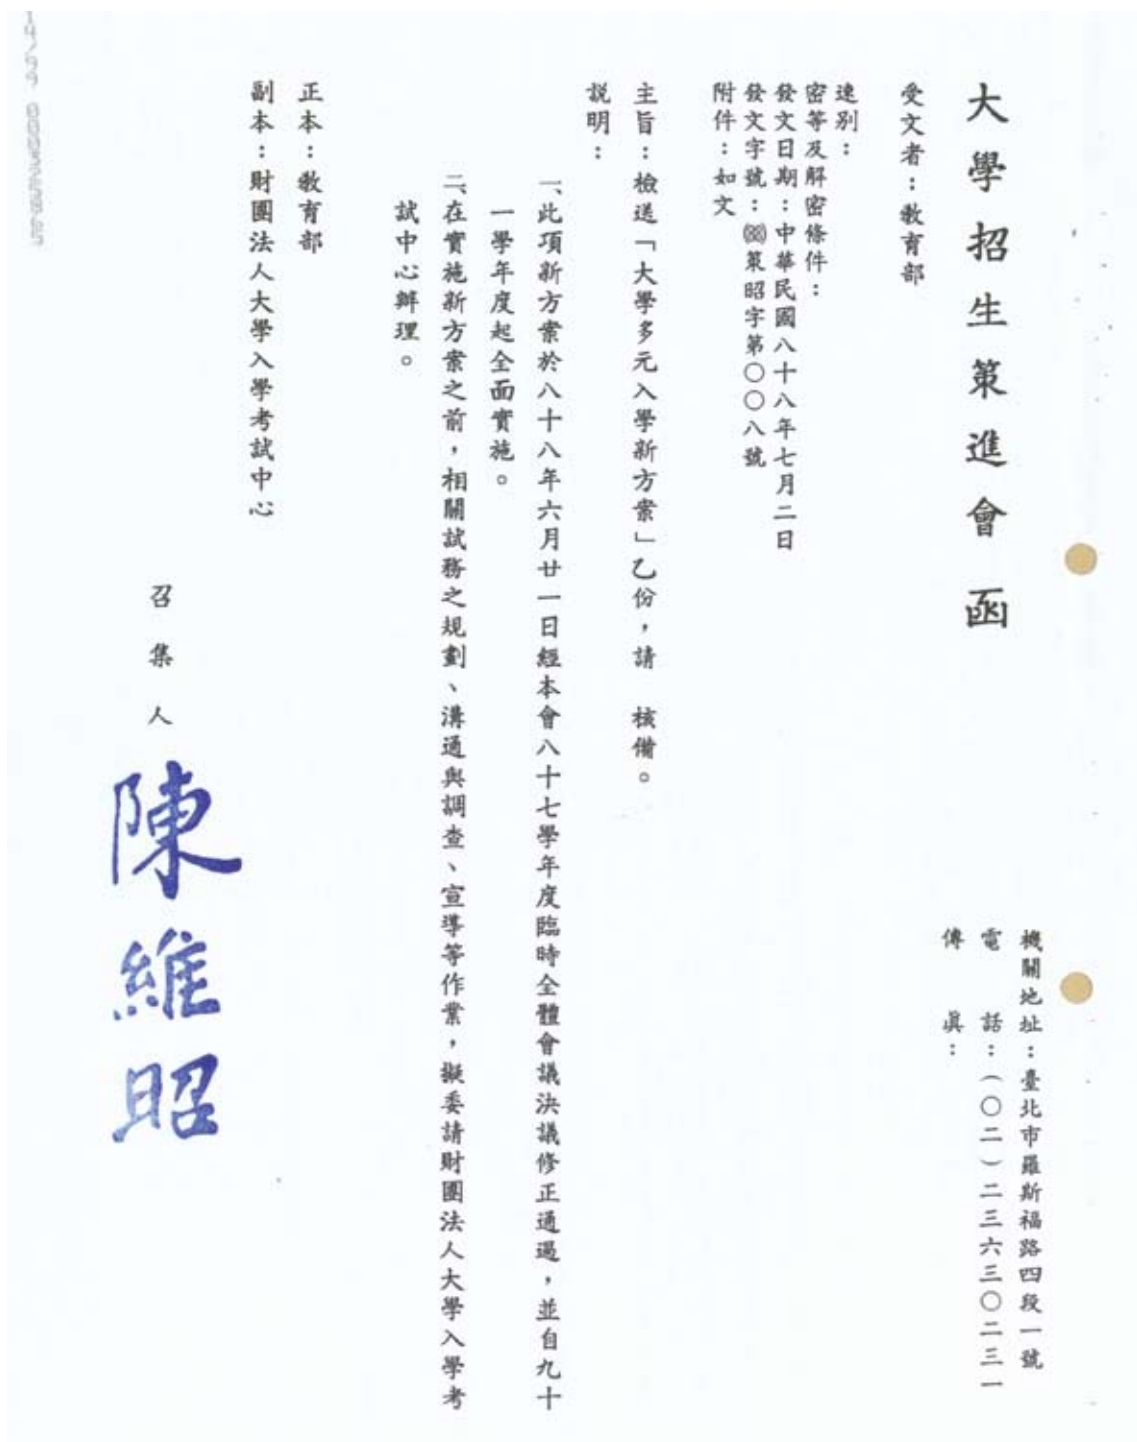 大學招生策進會 函
機關地址：臺北市羅斯福路四段一號
電　　話：（〇二）二三六三〇二三一
傳　　真：
受文者：教育部
速別：
密等及解密條件：
發文日期：中華民國八十八年七月二日
發文字號：(88)策昭字第〇〇八號
附件：如文
主旨：檢送「大學多元入學新方案」乙份，請　核備。
說明：
一、此項新方案於八十八年六月廿一日經本會八十七學年度臨時全體會議決議修正通過，並自九十
一學年度起全面實施。
二、在實施新方案之前，相關試務之規劃、溝通與調查、宣導等作業，擬委請財團法人大學入學考
試中心辦理。
正本：教育部
副本：財團法人大學入學考試中心
召集人 陳維昭